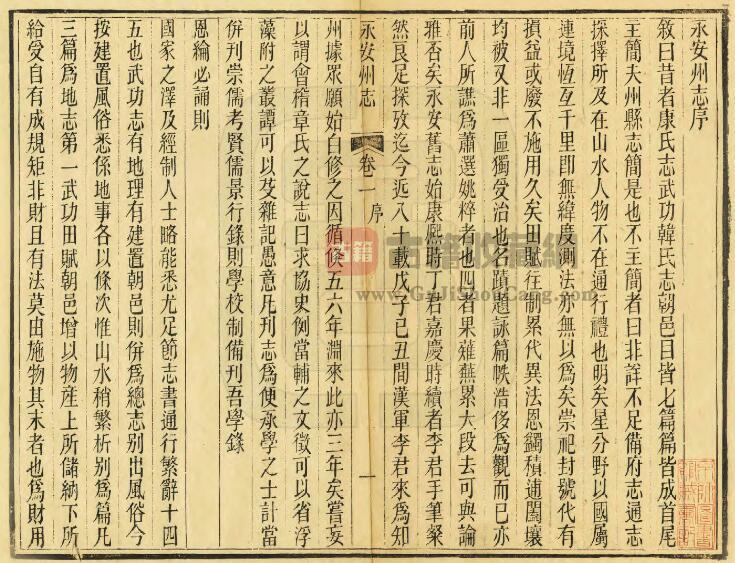 永安州志序
敘曰昔者康氏志武功韓氏志朝邑目皆七篇篇皆成首尾
主簡夫州縣志簡是也不主簡者曰非詳不足備府志通志
採擇所及在山水人物不在通行禮也明矣星分野以國屬
連境恆亙千里即無緯度測法亦無以爲矣崇祀封號代有
損益或廢不施用久矣田賦往制累代異法恩蠲積逋闔壤
均被又非一區獨受治也名蹟題詠篇帙浩侈爲觀而已亦
前人所譙爲蕭選姚粹者也四者果薙蕪累大段去可與論
雅否矣永安舊志始康熙時丁君嘉慶時續者李君手筆粲
然良足探攷迄今近八十載戊子己丑間漢軍李君來爲知
永安州志 卷一 序 一
州據眾願始白修之因循倏五六年淵來此亦三年矣嘗妄
以謂會稽章氏之說志曰求協史例當輔之文徵可以省浮
藻附之叢譚可以芟雜記愚意凡刊志爲便承學之士計當
併刊崇儒考賢儒景行錄則學校制備刊吾學錄
恩綸必誦則
國家之澤及經制人士略能悉尤足節志書通行繁辭十四
五也武功志有地理有建置朝邑則併爲總志别出風俗今
按建置風俗悉係地事各以條次惟山水稍繁析别爲篇凡
三篇爲地志第一武功田賦朝邑增以物產上所儲納下所
給受自有成規矩非財且有法莫由施物其末者也爲財用
古籍收藏網
www.GuJiShouCang.com